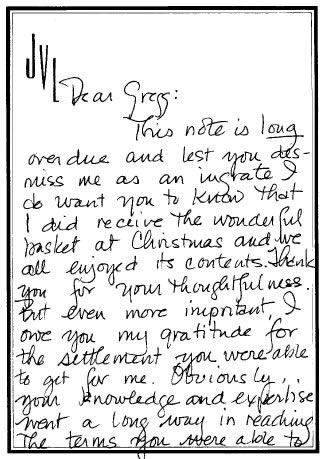 JVL
Dear Gregg:
This note is long
overdue and lest you des-
miss me as an ingrate I
do want you to know that
I did receive the wonderful
basket at Christmas and we
all enjoyed its contents. Thank
you for your thoughtfulness.
But even more important I
owe you my gratitude for
the settlement you were able
to get for me. Obviously,
your knowledge and expertise
went a long way in reaching
the terms you were able to